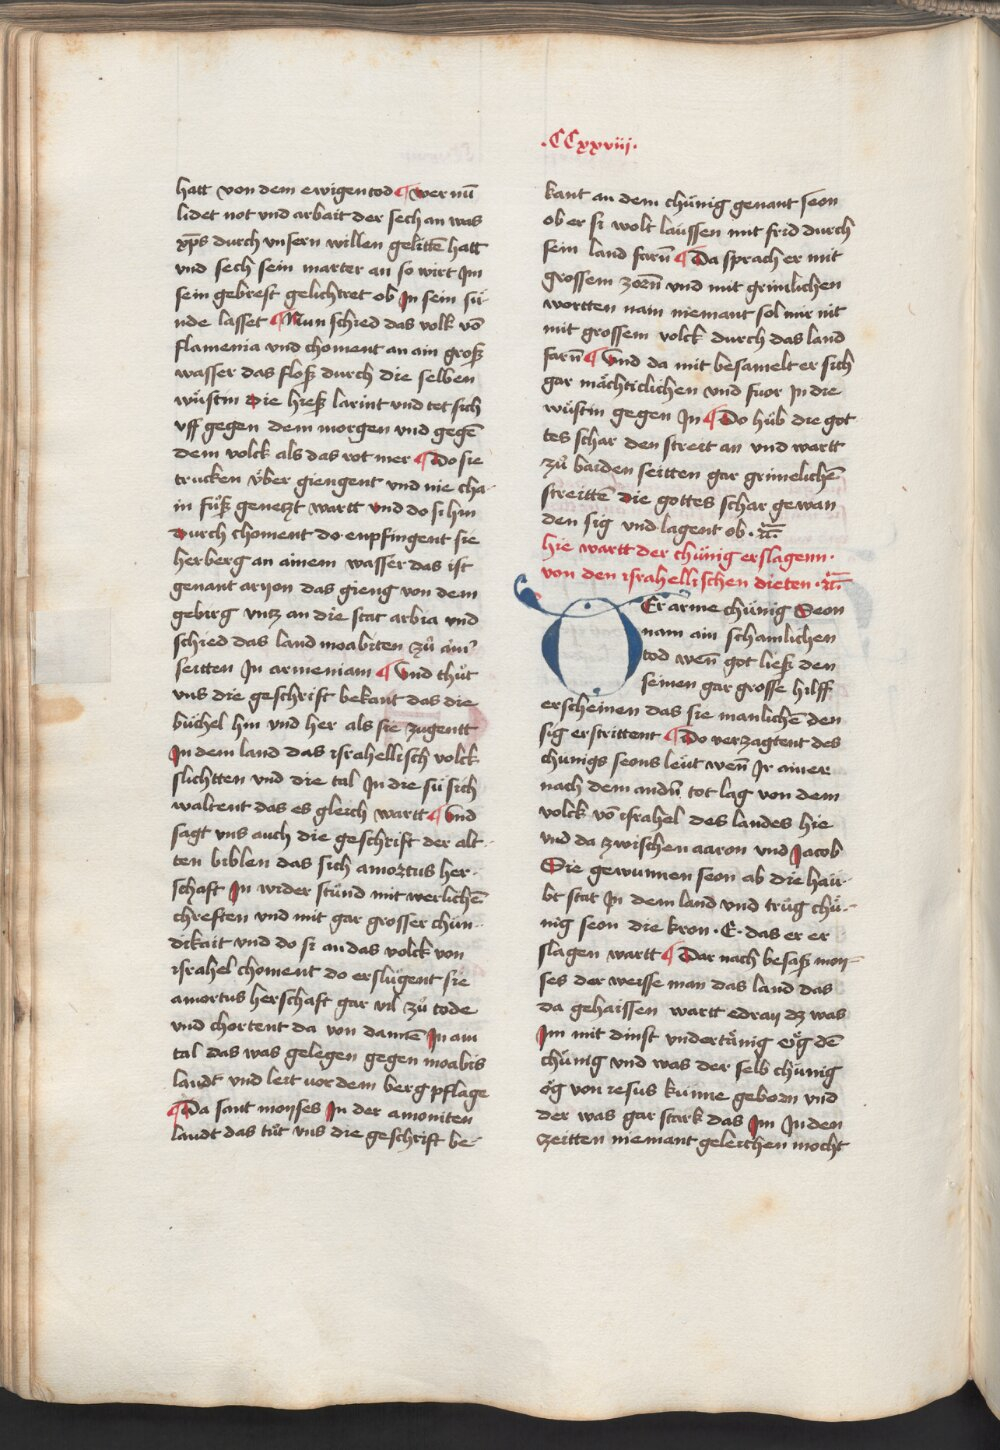 .CCxxviij.
hatt von dem ewigen tod ¶ wer nū
lidet not vnd arbait der sech an was
xp̄s durch vnsern willen gelittē hatt
vnd sech sein marter an so wirt Im
sein gebrest gelichtret ob In sein sü-
nde lasset ¶ Nun schied das volk vō
flamenia vnd choment an ain groß
wasser das floß durch die selben
wüstin Die hieß larint vnd tet sich
vff gegen dem morgen vnd gegē
dem volck als das rot mer ¶ Do sie
trucken v̈ber giengent vnd nie cha-
in fůß genetzt wartt vnd do si hin
Durch choment do enpfingent sie
herberg an ainem wasser das ist
genant arnon das gieng von dem
gebirg vntz an die stat arbia vnd
schied das land moabiten zů ainr̄
seitten In armeniam ¶ Vnd thůt
vns die geschrift bekant das die
büchel hin vnd her als sie zugentt
In dem land das israhellisch volck
slichtten vnd die tal In die sü sich
waltent das es gleich wartt ¶ Vnd
sagt vns auch die geschrift der alt-
ten biblen das sich amortus her-
schaft In wider stünd mit werlichē
chreften vnd mit gar grosser chün-
dikait vnd do si an das volck von
israhel choment do erslügent sie
amortus herschaft gar vil zů tode
vnd chortent da von dannē In ain
tal das was gelegen gegen moabis
landt vnd leit vor dem berg pflage
¶ Da sant moyses In der amoniten
landt das tůt vns die geschrift be-
kant an dem chünig genant seon
ob er si wolt laussen mit frid durch
sein land farn̄ ¶ Da sprach er mit
grossem zorn̄ vnd mit grimlichen
wortten nain niemant sol mir nit
mit grossem volck durch das land
farn̄ ¶ Vnd da mit besamelt er sich
gar mächticlichen vnd fuor In die
wüstin gegen In ¶ Do hüb die got
tes schar den streit an vnd wartt
zů baiden seitten gar grimelichē
streittē Die gottes schar gewan
den sig vnd lagent ob · rc̄.
hie wartt der chünig erslagenn.
von den israhellischen dieten · rc̄.
DEr arme chünig Seon
nam ain schamlichen
tod wen̄ got ließ den
seinen gar grosse hilff
erscheinen das sie manlichē den
sig erstrittent ¶ Do verzagtent des
chünigs seons leüt wen̄ Ir ainer
nach dem andn̄ tot lag von dem
volck vō israhel des landes hie
vnd da zwischen aaron vnd Jacob
Die gewunnen seon ab die hau-
bt stat In dem land vnd trůg chü-
nig seon die kron · E · das er er
slagen wartt ¶ Dar nach besaß moy-
ses der weisse man das land das
da gehaissen wartt edray dz was
Im mit dinst vndertänig Og̈ dē
chünig vnd was der selb chünig
og̈ von resus künne geborn vnd
der was gar stark das Im In den
zeitten niemant geleichen mocht